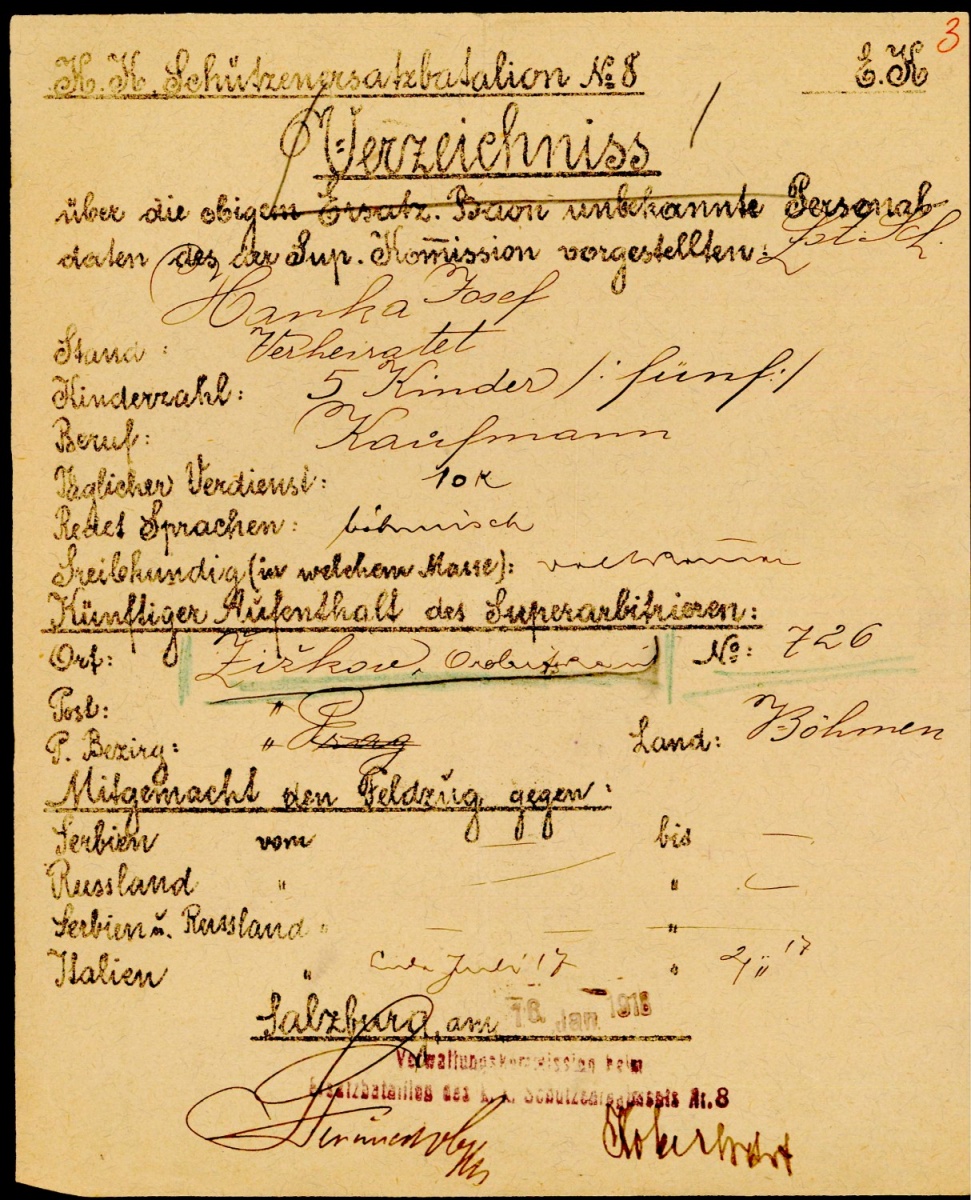 3
K. K. Schützenersatzbatalion No 8 E. K
Verzeichniss
über die obigem Ersatz. Baon unbekannte Personal-
daten des der Sup. Kom̄ission vorgestellten: Lst. Sch.
Hanka Josef
Stand: Verheiratet
Kinderzahl: 5 Kinder /: fünf :/
Beruf: Kaufmann
Täglicher Verdienst: 10 K
Redet Sprachen: böhmisch
Sreibkundig (in welchem Masse):
Künftiger Aufenthalt des Superarbitrieren:
Ort: Žižkov, No: 726
Post: "
P. Bezirg: " Prag Land: Böhmen
Mitgemacht den Feldzug gegen:
Serbien vom — bis —
Russland " — " —
Serbien u. Russland " — " —
Italien " Juli 17 " 17
Salzburg, am 16. Jan. 1918
Verwaltungskommission beim
Ersatzbataillon des k. k. Schützenregiments Nr. 8